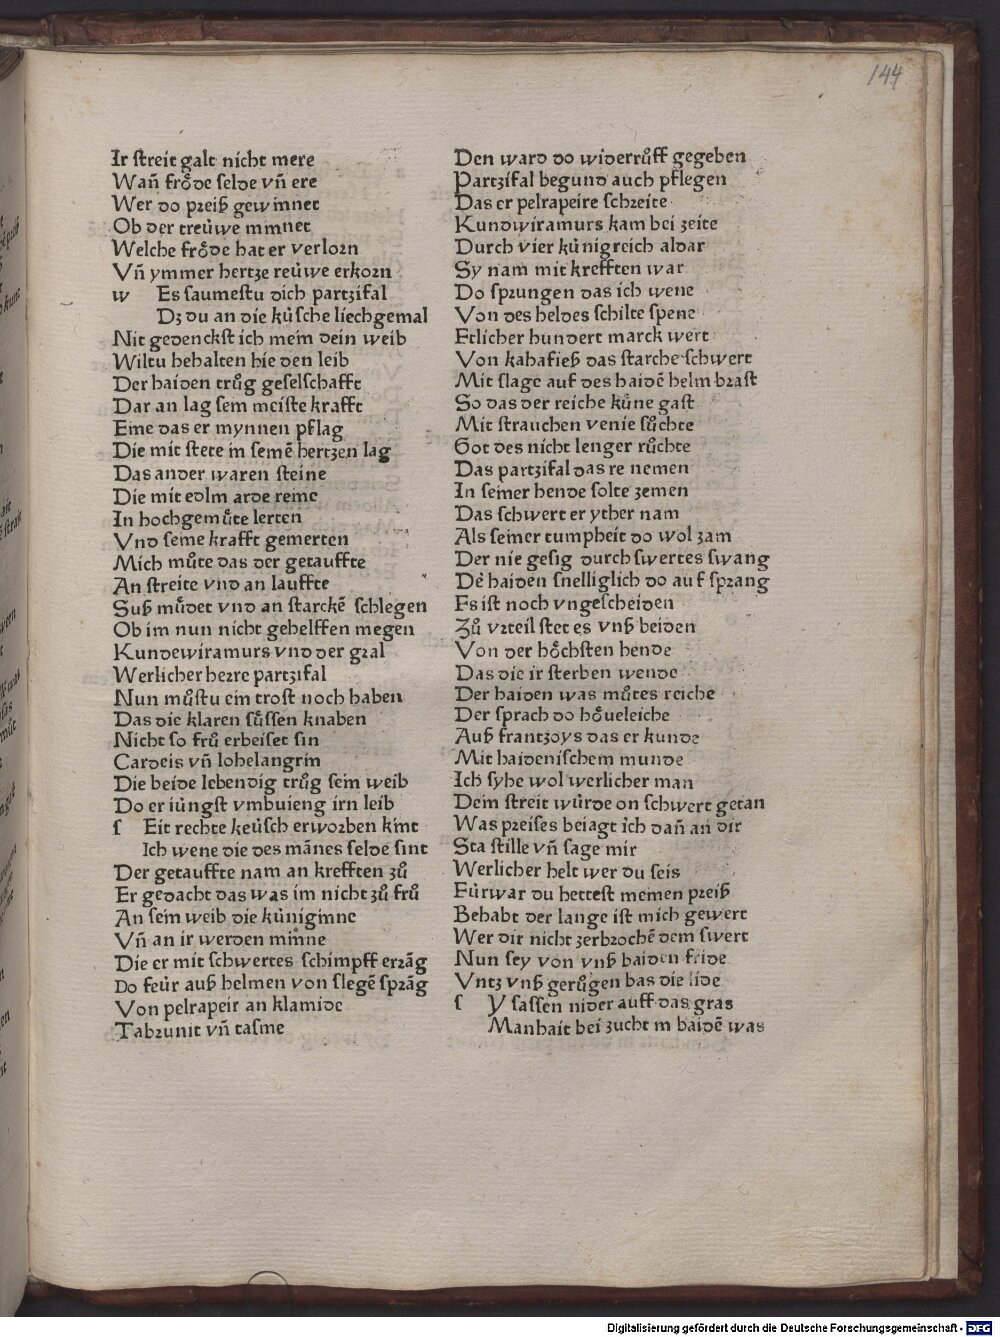 144
Ir streit galt nicht mere
Wan̄ froͤde selde vn̄ ere
Wer do preiß gewinnet
Ob der treuͤwe minnet
Welche froͤde hat er verlorn
Vn̄ ymmer hertze reuͤwe erkorn
w Es saumestu dich partzifal
Dz du an die kuͤsche liechgemal
Nit gedenckst ich mein dein weib
Wiltu behalten hie den leib
Der haiden truͦg geselschafft
Dar an lag sein meiste krafft
Eine das er mynnen pflag
Die mit stete in seinē hertzen lag
Das ander waren steine
Die mit edlm arde reine
In hochgemuͤte lerten
Vnd seine krafft gemerten
Mich muͤte das der getauffte
An streite vnd an lauffte
Suß muͤdet vnd an starckē schlegen
Ob im nun nicht gehelffen megen
Kundewiramurs vnd der gral
Werlicher herre partzifal
Nun muͦstu ein trost noch haben
Das die klaren suͤssen knaben
Nicht so fruͦ erbeiset sin
Cardeis vn̄ lohelangrin
Die beide lebendig truͦg sein weib
Do er iuͤngst vmbuieng irn leib
s Eit rechte keuͤsch erworben kint
Ich wene die des mānes selde sint
Der getauffte nam an krefften zuͦ
Er gedacht das was im nicht zuͦ fruͦ
An sein weib die kuͤniginne
Vn̄ an ir werden minne
Die er mit schwertes schimpff erzāg
Do feuͤr auß helmen von slegē sprāg
Von pelrapeir an klamide
Tabrunit vn̄ tasme
Den ward do widerruͦff gegeben
Partzifal begund auch pflegen
Das er pelrapeire schreite
Kundwiramurs kam bei zeite
Durch vier kuͤnigreich aldar
Sy nam mit krefften war
Do sprungen das ich wene
Von des heldes schilte spene
Etlicher hundert marck wert
Von kahafieß das starche schwert
Mit slage auf des haidē helm brast
So das der reiche kuͤne gast
Mit strauchen venie suͦchte
Got des nicht lenger ruͦchte
Das partzifal das re nemen
In seiner hende solte zemen
Das schwert er yther nam
Als seiner tumpheit do wol zam
Der nie gesig durch swertes swang
De haiden snelliglich do auf sprang
Es ist noch vngescheiden
Zuͦ vrteil stet es vnß beiden
Von der hoͤchsten hende
Das die ir sterben wende
Der haiden was muͦtes reiche
Der sprach do hoͤueleiche
Auß frantzoys das er kunde
Mit haidenischem munde
Ich syhe wol werlicher man
Dein streit wuͤrde on schwert getan
Was preises beiagt ich dan̄ an dir
Sta stille vn̄ sage mir
Werlicher helt wer du seis
Fuͤrwar du hettest meinen preiß
Behabt der lange ist mich gewert
Wer dir nicht zerbrochē dein swert
Nun sey von vnß baiden fride
Vntz vnß geruͦgen bas die lide
s Y sassen nider auff das gras
Manhait bei zucht in baidē was
Digitalisierung gefördert durch die Deutsche Forschungsgemeinschaft - DFG